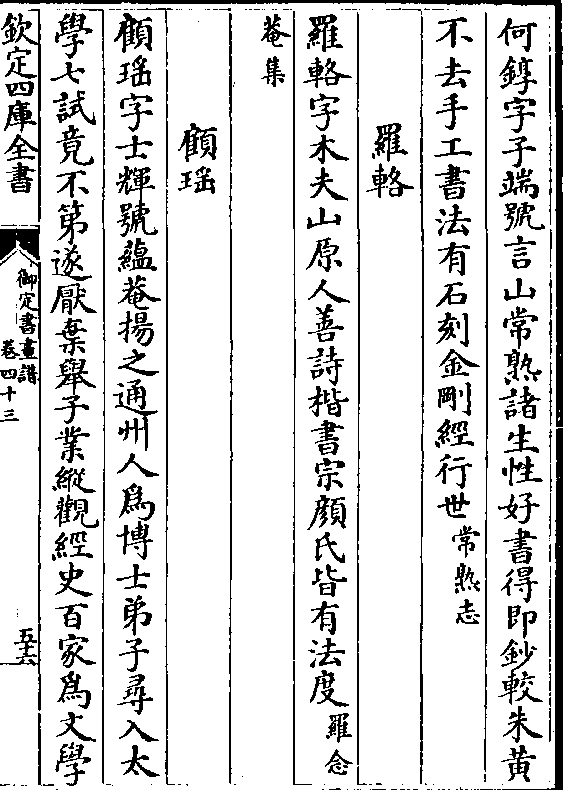 何錞字子端號言山常熟諸生性好書得即鈔較朱黃
不去手工書法有石刻金剛經行世常熟志
羅輅
羅輅字木夫山原人善詩楷書宗顔氏皆有法度羅念
菴集
顧瑶
顧瑶字士輝號蘊菴揚之通州人爲博士弟子尋入太
學七試竟不第遂厭棄舉子業縱觀經史百家爲文學
欽定四庫全書
御定書畫譜
卷四十三
五十六